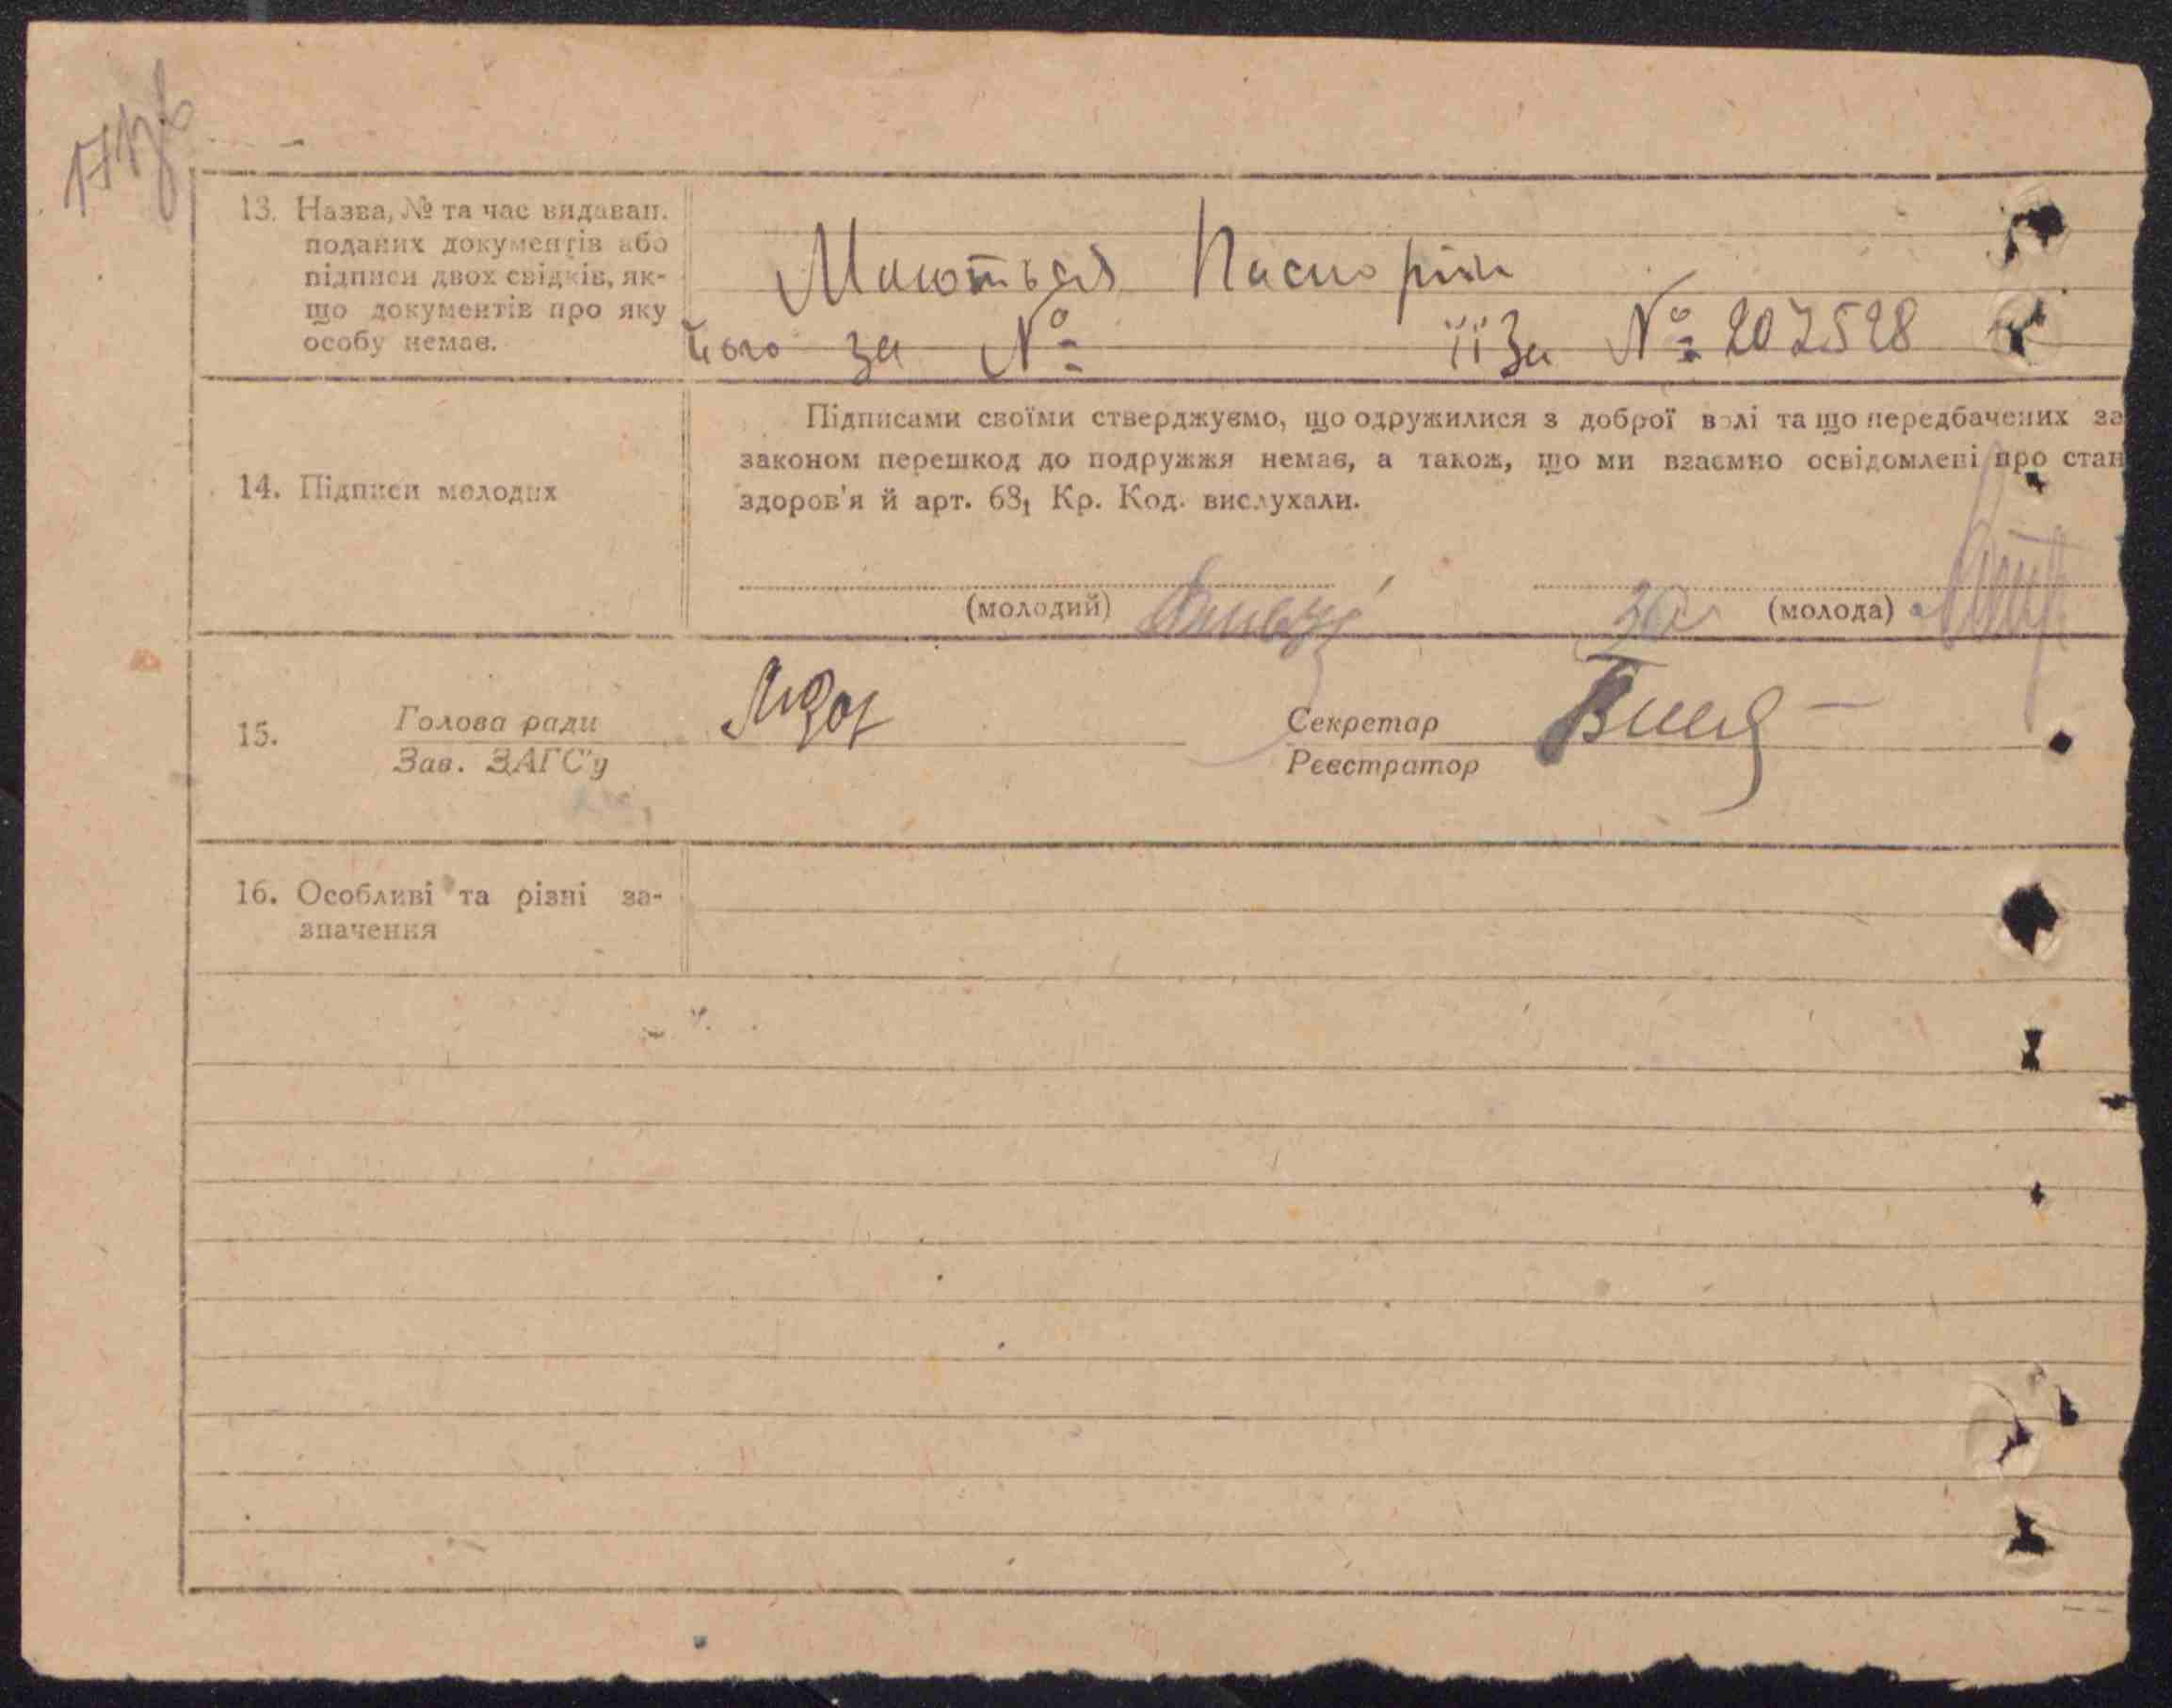 13. Назва, № та час видаван.
поданих документів або
підписи двох свідків, як-
що документів про яку
особу немає.
Маються Паспорти
його за № її за № 207528
14. Підписи молодих
Підписами своїми стверджуємо, що одружилися з доброї волі та що передбачених за
законом перешкод до подружжя немає, а також, що ми взаємно освідомлені про стан
здоров'я й арт. 68₁ Кр. Код. вислухали.
(молодий) (молода)
15. Голова ради Секретар
Зав. ЗАГС'у Реєстратор
16. Особливі та різні за-
значення